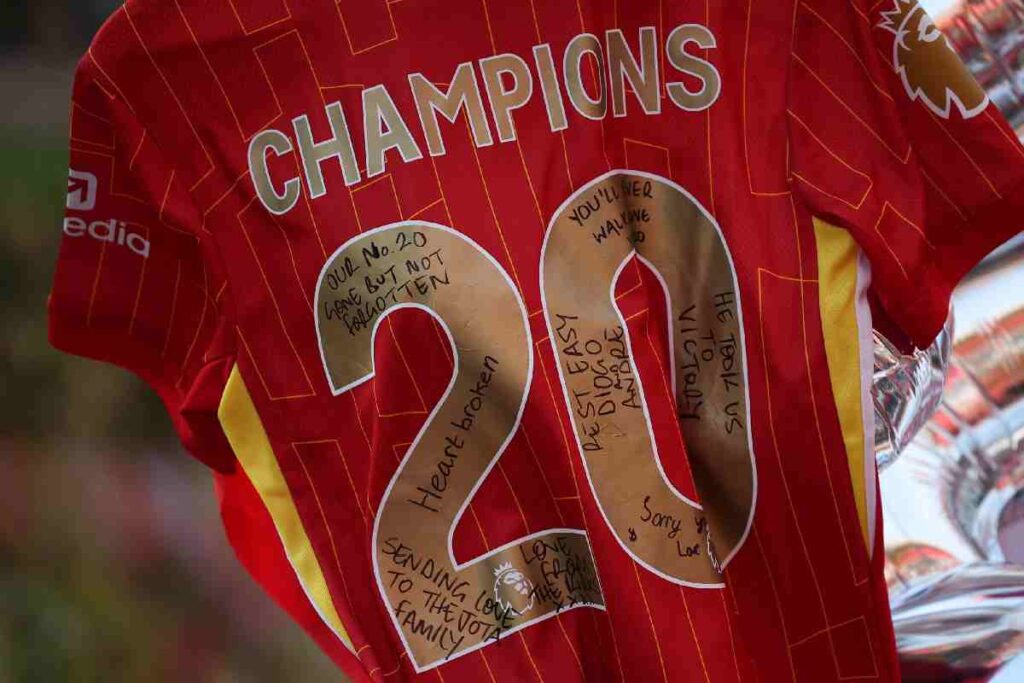 CHAMPIONS
20
edia
OUR No.20
GONE BUT NOT
FORGOTTEN
Heart broken
SENDING LOVE
TO THE JOTA
FAMILY
LOVE
FROM
THE
YOU'LL
WALK
REST EASY
DIOGO
AND
ANDRE
HE TOOK US
TO
VICTORY
Sorry